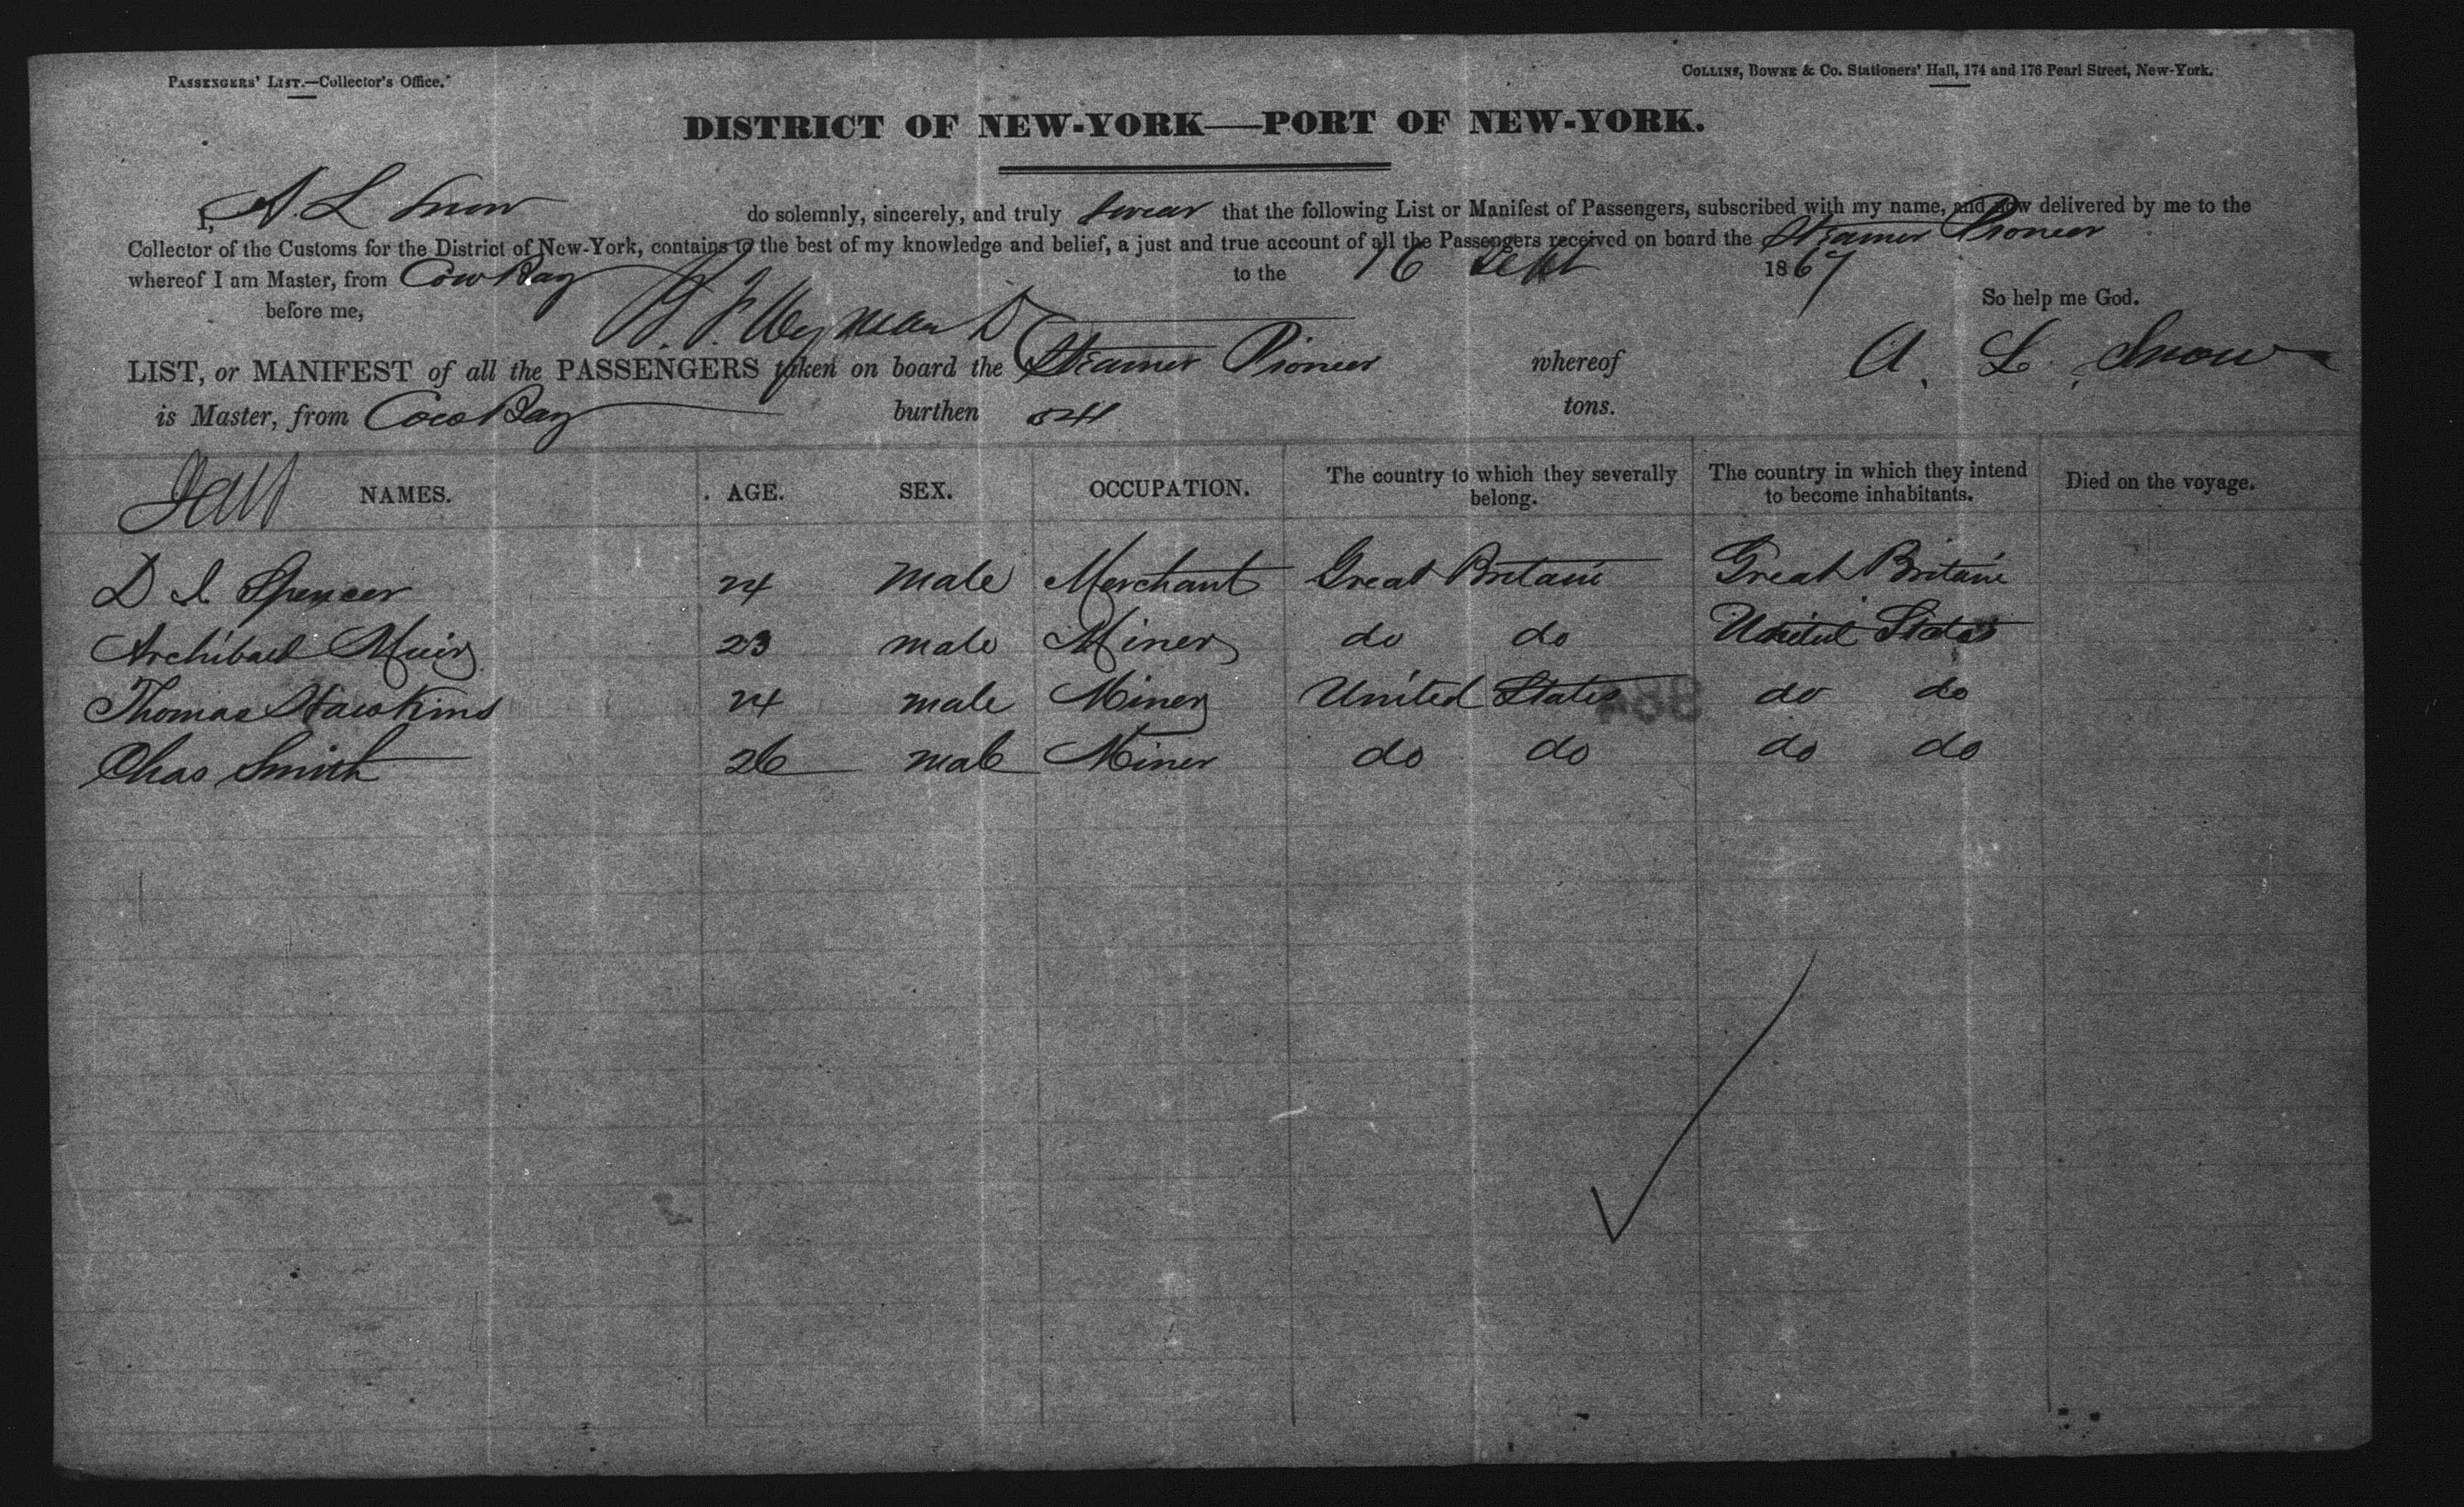 PASSENGERS' LIST.—Collector's Office.
COLLINS, BOWNE & Co. Stationers' Hall, 174 and 176 Pearl Street, New-York.
DISTRICT OF NEW-YORK—PORT OF NEW-YORK.
I, A. L Snow do solemnly, sincerely, and truly swear that the following List or Manifest of Passengers, subscribed with my name, and now delivered by me to the
Collector of the Customs for the District of New-York, contains to the best of my knowledge and belief, a just and true account of all the Passengers received on board the Steamer Pioneer
whereof I am Master, from Cow Bay to the 16 Sept 1867
So help me God.
before me,
A. L. Snow
LIST, or MANIFEST of all the PASSENGERS taken on board the Steamer Pioneer whereof
is Master, from Cow Bay burthen tons.
NAMES. AGE. SEX. OCCUPATION. The country to which they severally belong. The country in which they intend to become inhabitants. Died on the voyage.
D I Spencer 24 Male Merchant Great Britain Great Britain
Archibald Muir 23 male Miner do do United States
Thomas Hawkins 24 male Miner United States do do
Chas Smith 26 male Miner do do do do